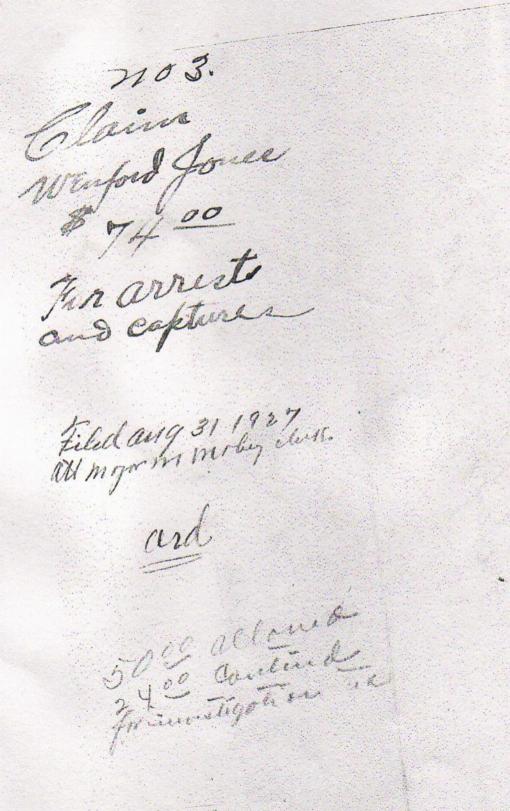 No 3.
Claim
Wenford Jones
$74 00
For arrests
and captures
Filed Aug 31 1927
clerk.
ard
50 00 allowed
24 00 Contind
for investigation